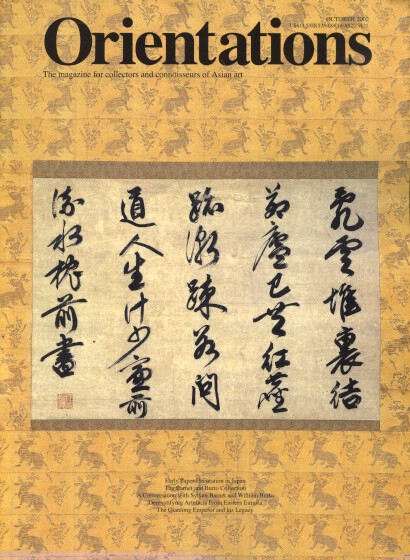 OCTOBER 2002
Orientations
The magazine for collectors and connoisseurs of Asian art
亂雲堆裏結
茆廬已共紅塵
跡漸踈若問
道人生計窗前
流水枕前書
Early Paper Decoration in Japan
The Barnet and Burto Collection
A Conversation with Sylvan Barnet and William Burto
Demystifying Artefacts From Eastern Eurasia
The Qianlong Emperor and his Legacy